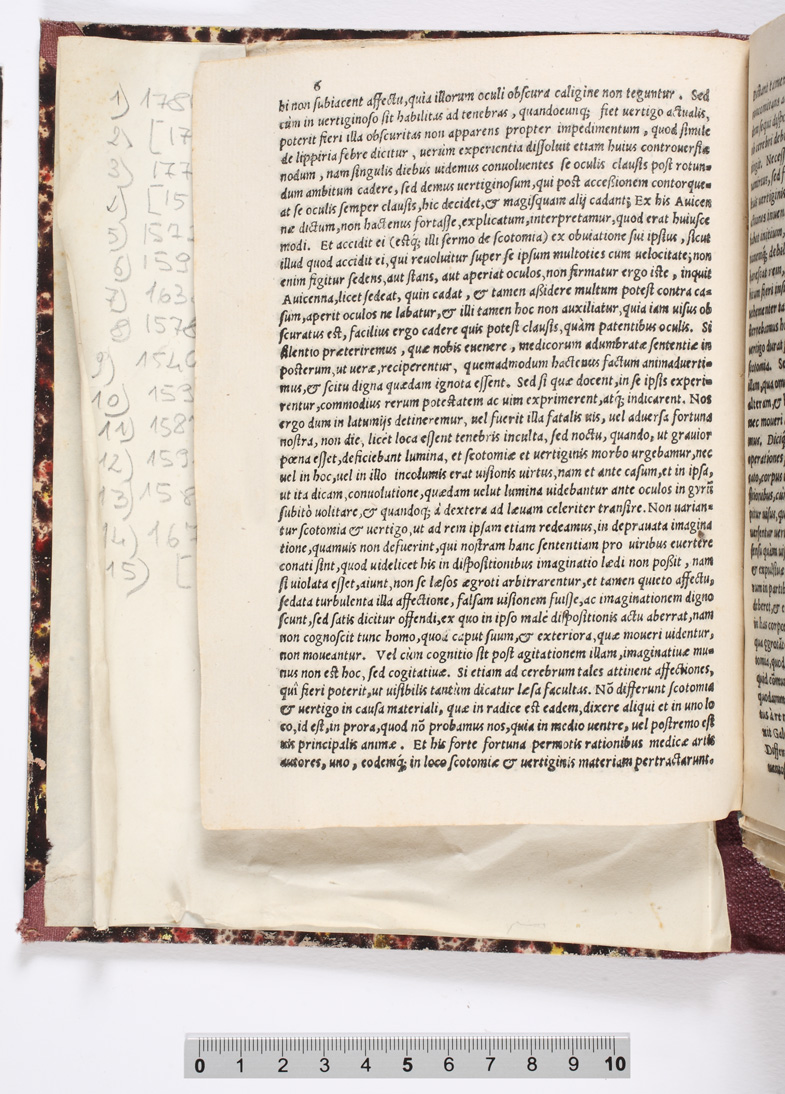 1) 178
2) [17
3) 177
4) [15
5) 157
6) 159
7) 163
8) 1578
9) 1540
10) 153
11) 158
12) 159
13) 158
14) 167
15) [
6
bi non subiacent affectu, quia illorum oculi obscura caligine non teguntur. Sed
cùm in uertiginoso sit habilitas ad tenebras, quandocunq; fiet uertigo actualis,
poterit fieri illa obscuritas non apparens propter impedimentum, quod simile
de lippiria febre dicitur, uerùm experientia dissoluit etiam huius controuersiæ
nodum, nam singulis diebus uidemus conuoluentes se oculis clausis post rotun-
dum ambitum cadere, sed demus uertiginosum, qui post accessionem contorque-
at se oculis semper clausis, hic decidet, & magisquam alij cadant; Ex his Auicen
næ dictum, non hactenus fortasse, explicatum, interpretamur, quod erat huiusce
modi. Et accidit ei (estq; illi sermo de scotomia) ex obuiatione sui ipsius, sicut
illud quod accidit ei, qui reuoluitur super se ipsum multoties cum uelocitate; non
enim figitur sedens, aut stans, aut aperiat oculos, non firmatur ergo iste, inquit
Auicenna, licet sedeat, quin cadat, & tamen assidere multum potest contra ca-
sum, aperit oculos ne labatur, & illi tamen hoc non auxiliatur, quia iam uisus ob
scuratus est, facilius ergo cadere quis potest clausis, quàm patentibus oculis. Si
silentio præteriremus, quæ nobis euenere, medicorum adumbratæ sententiæ in
posterum, ut ueræ, reciperentur, quemadmodum hactenus factum animaduerti-
mus, & scitu digna quædam ignota essent. Sed si quæ docent, in se ipsis experi-
rentur, commodius rerum potestatem ac uim exprimerent, atq; indicarent. Nos
ergo dum in latumijs detineremur, uel fuerit illa fatalis uis, uel aduersa fortuna
nostra, non die, licet loca essent tenebris inculta, sed noctu, quando, ut grauior
pœna esset, deficiebant lumina, et scotomiæ et uertiginis morbo urgebamur, nec
uel in hoc, uel in illo incolumis erat uisionis uirtus, nam et ante casum, et in ipsa,
ut ita dicam, conuolutione, quædam uelut lumina uidebantur ante oculos in gyrũ
subitò uolitare, & quandoq; à dextera ad læuam celeriter transire. Non uarian-
tur scotomia & uertigo, ut ad rem ipsam etiam redeamus, in deprauata imagina
tione, quamuis non defuerint, qui nostram hanc sententiam pro uiribus euertere
conati sint, quod uidelicet his in dispositionibus imaginatio lædi non possit, nam
si uiolata esset, aiunt, non se læsos ægroti arbitrarentur, et tamen quieto affectu,
sedata turbulenta illa affectione, falsam uisionem fuisse, ac imaginationem digno
scunt, sed satis dicitur offendi, ex quo in ipso malè dispositionis actu aberrat, nam
non cognoscit tunc homo, quod caput suum, & exteriora, quæ moueri uidentur,
non moueantur. Vel cùm cognitio sit post agitationem illam, imaginatiuæ mu-
nus non est hoc, sed cogitatiuæ. Si etiam ad cerebrum tales attinent affectiones,
quî fieri poterit, ut uisibilis tantùm dicatur læsa facultas. Nõ differunt scotomia
& uertigo in causa materiali, quæ in radice est eadem, dixere aliqui et in uno lo
co, id est, in prora, quod nõ probamus nos, quia in medio uentre, uel postremo est
uis principalis animæ. Et his forte fortuna permotis rationibus medicæ artis
autores, uno, eodemq; in loco scotomiæ & uertiginis materiam pertractarunt.
0 1 2 3 4 5 6 7 8 9 10